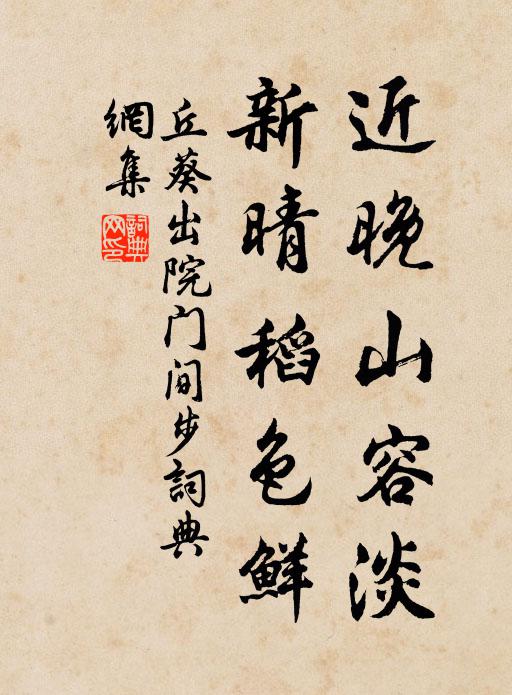 近晚山容淡
新晴稻色鮮
丘葵出院门间步詞典
網集
詞典網印